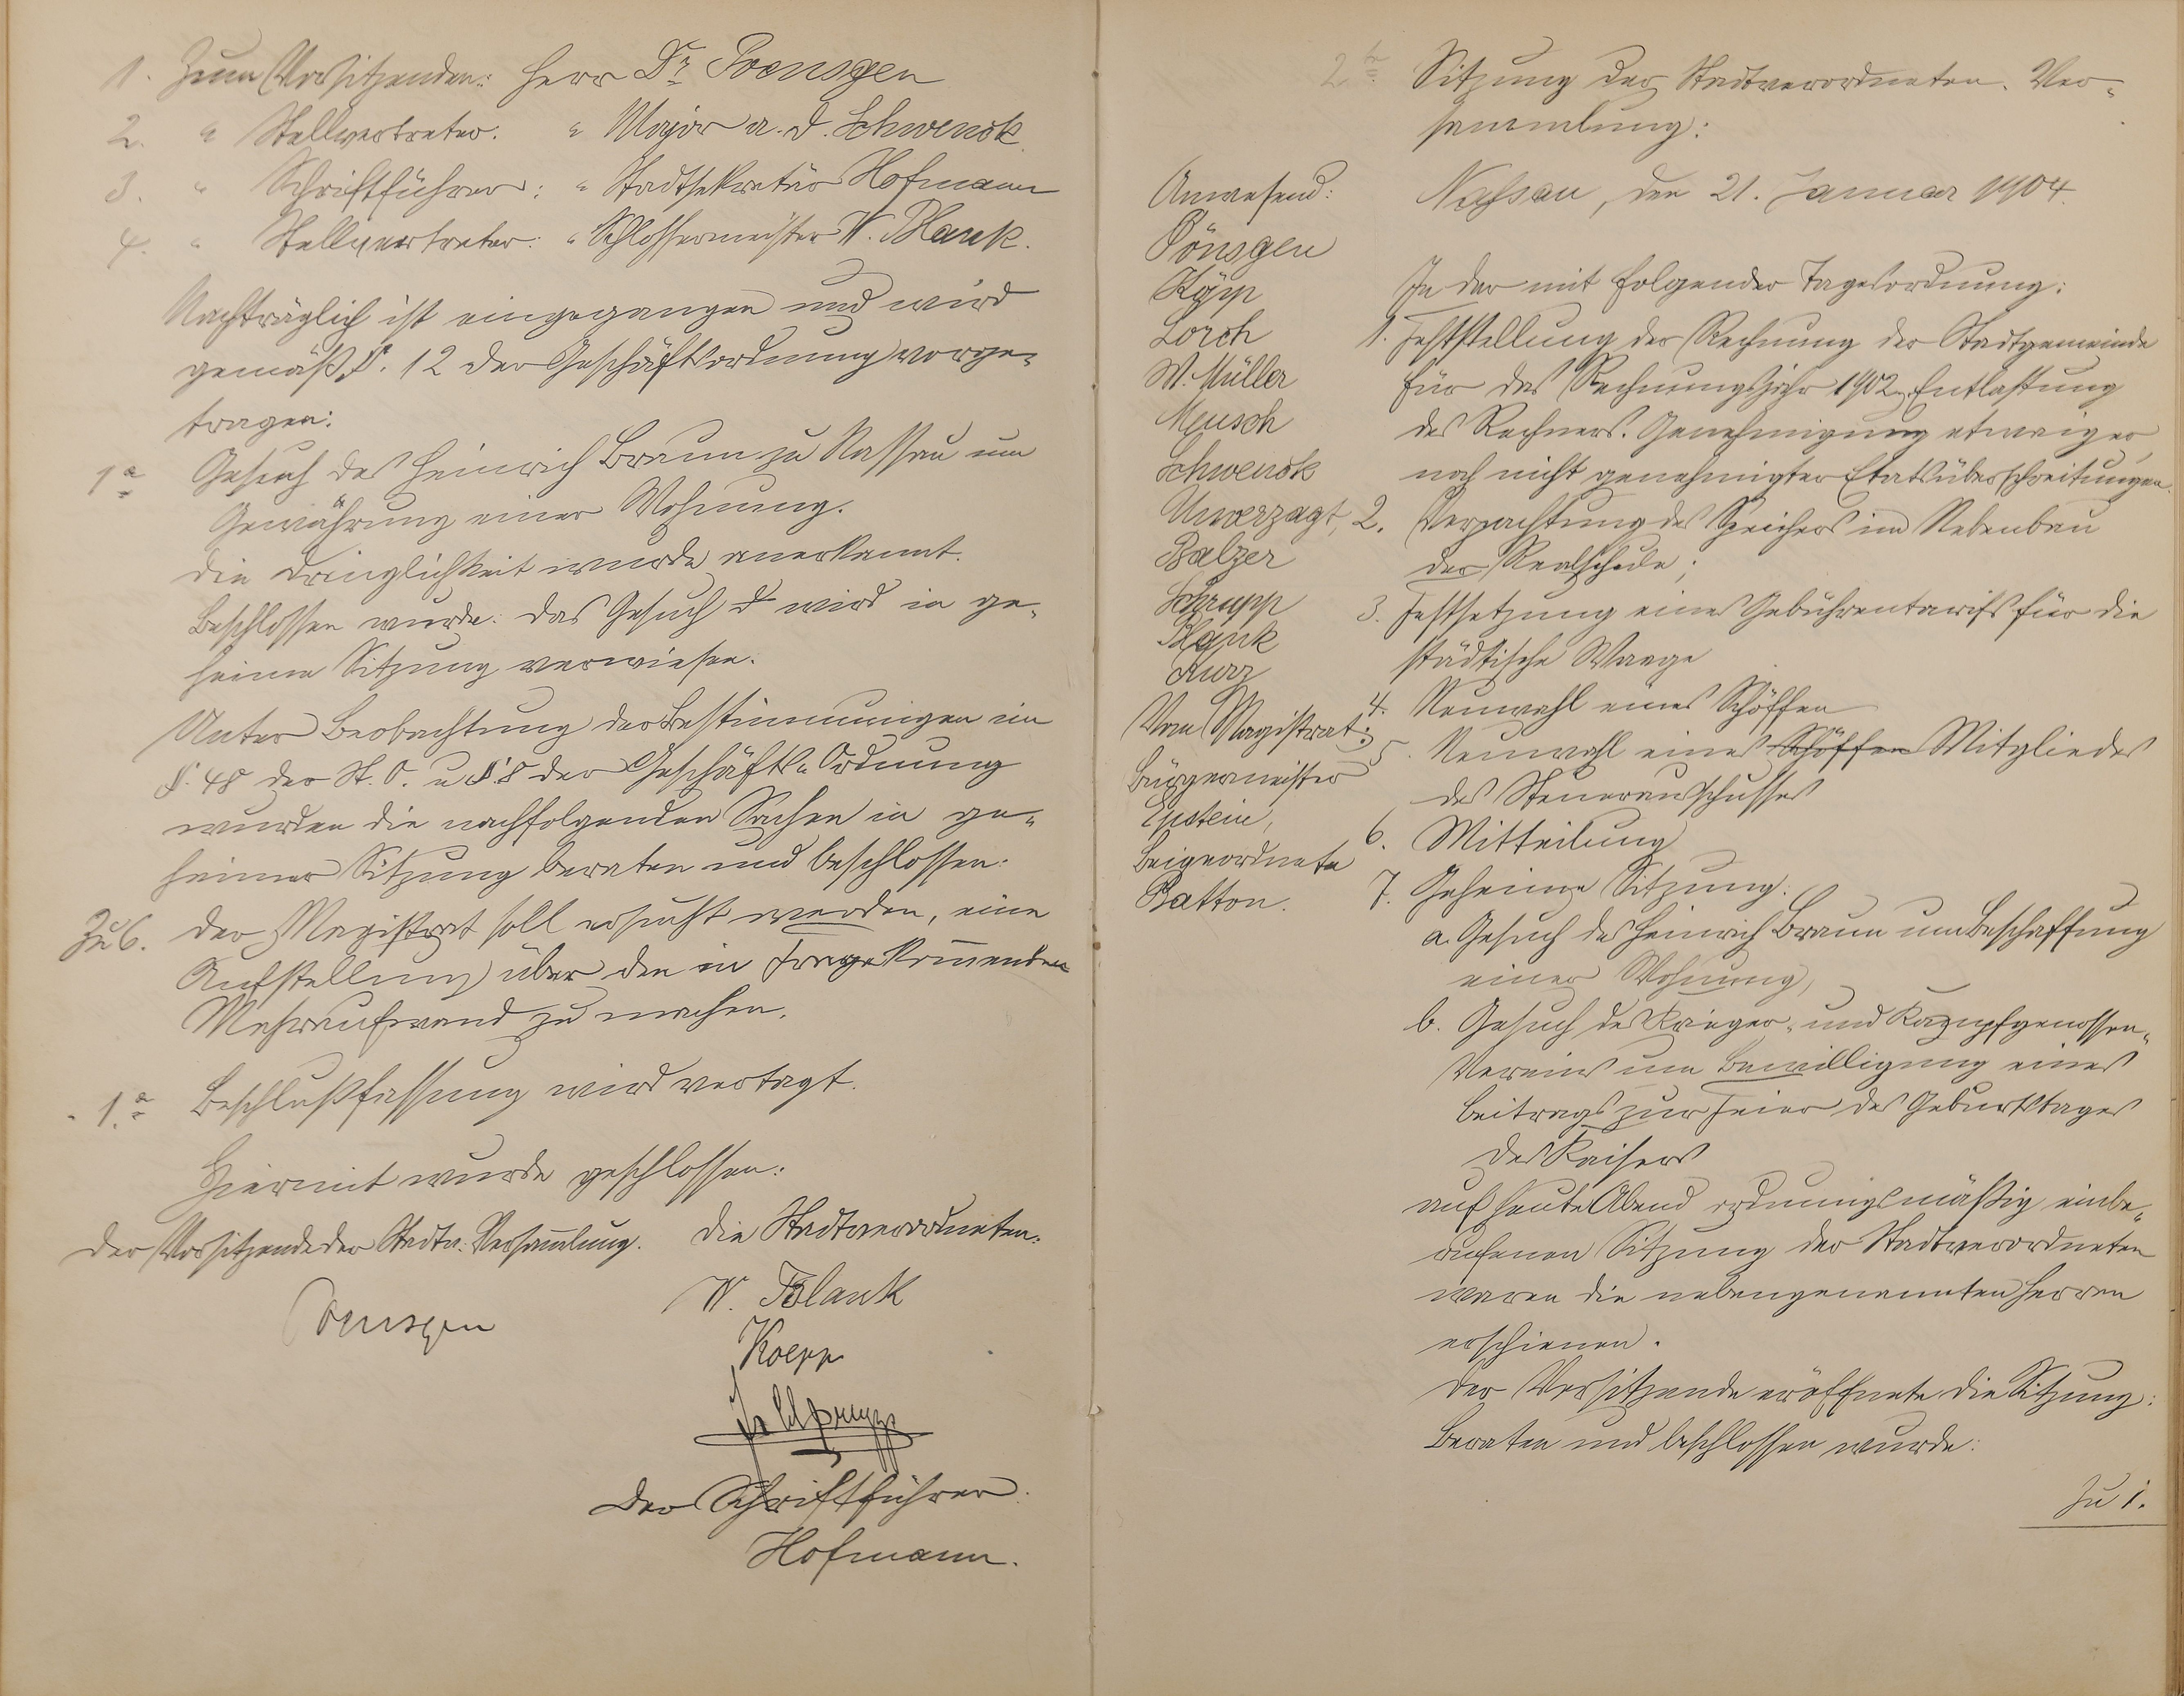 1. Zum Vorsitzenden: Herr Dr Poensgen
2. " Stellvertreter: " Major a. d. Schwenck
3. " Schriftführer: " Stadtsekretär Hofmann
4. " Stellvertreter: " Schlossermeister W. Blank.
Nachträglich ist eingegangen und wird
gemäß §. 12 der Geschäftsordnung vorge-
tragen:
1a Gesuch des Heinrich Braun zu Nassau um
Gewährung einer Wohnung.
Die Dringlichkeit wurde anerkannt.
Beschlossen wurde: Das Gesuch wird in ge-
heime Sitzung verwiesen.
Unter Beobachtung der Bestimmungen im
§. 48 der St. O. u §. 8 der Geschäfts-Ordnung
wurden die nachfolgenden Sachen in ge-
heimer Sitzung beraten und beschlossen:
Zu 6. Der Magistrat soll ersucht werden, eine
Aufstellung über den in Frage kommenden
Mehraufwand zu machen.
" 1.a Beschlußfassung wird vertagt.
Hiermit wurde geschlossen:
Der Vorsitzende der Stadtv. Versammlung. Die Stadtverordneten:
Poensgen
W. Blank
Koepp
Schrupp
Der Schriftführer:
Hofmann.
2te Sitzung der Stadtverordneten-Ver-
sammlung:
Nassau, den 21. Januar 1904.
Anwesend:
Pönsgen
Köpp
Lorch
W. Müller
Meusch
Schwenck
Unverzagt,
Balzer
Schrupp
Blank
Kurz
Vom Magistrat:
Bürgermeister
Epstein,
Beigeordnete
Batton.
In der mit folgender Tagesordnung:
1. Feststellung der Rechnung der Stadtgemeinde
für das Rechnungsjahr 1902, Entlastung
des Rechners. Genehmigung etwaiger,
noch nicht genehmigter Etatsüberschreitungen.
2. Verpachtung des Speichers im Nebenbau
der Realschule;
3. Festsetzung eines Gebührentarifs für die
städtische Waage
4. Neuwahl eines Schöffen
5. Neuwahl eines Schöffen Mitgliedes
des Steuerausschusses
6. Mitteilung
7. Geheime Sitzung:
a. Gesuch des Heinrich Braun um Beschaffung
einer Wohnung,
b. Gesuch des Krieger- und Kampfgenossen-
Vereins um Bewilligung eines
Beitrags zur Feier des Geburtstages
des Kaisers
auf heute Abend ordnungsmäßig einbe-
rufenen Sitzung der Stadtverordneten
waren die nebengenannten Herren
erschienen.
Der Vorsitzende eröffnete die Sitzung:
Beraten und beschlossen wurde:
Zu 1.